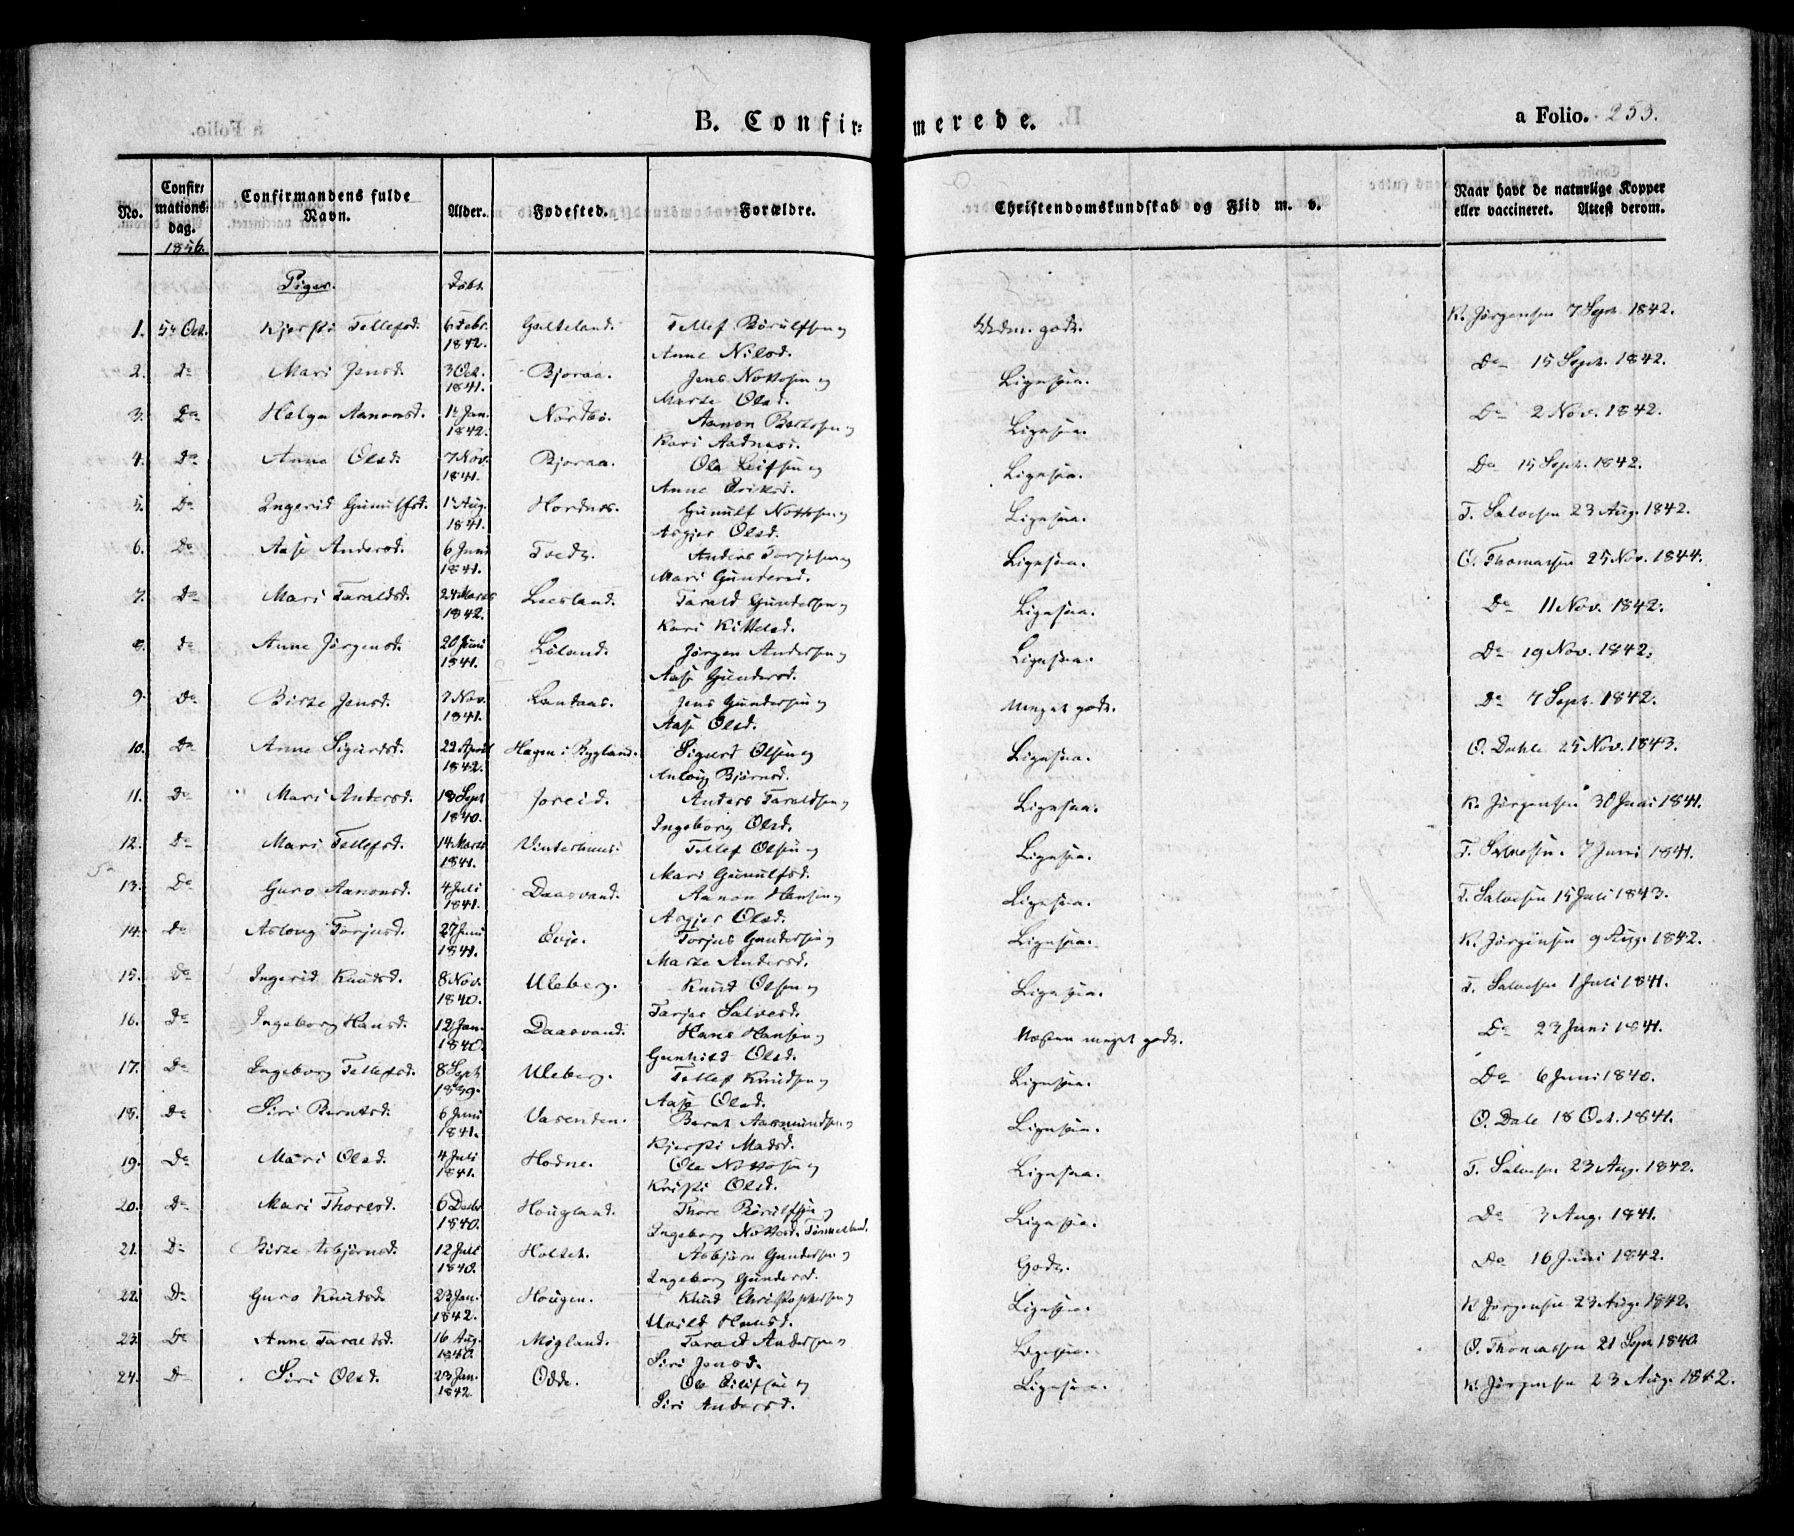 B. Confir=merede.
a Folio. 253.
No. Confir=mations=dag. Confirmandens fulde Navn. Alder. Fødested. Forældre. Christendomskundskab og Flid m. v. Naar havt de naturlige Kopper eller vaccineret. Attest derom.
1856.
Piger. døbt
1. 5te Oct. Kjersti Tellefsd. 6 Febr. 1842. Galteland. Tellef Børulfsen og Anne Nilsd. godt. K. Jørgensen 7 Sept. 1842.
2. Do Mari Jensd. 3 Oct. 1841. Bjoraa. Jens Nottosen og Marte Olsd. Ligesaa. Do 15 Sept. 1842.
3. Do Helga Aanonsd. 1ste Jan. 1842. Nordbø. Aanon Berthsen og Kari Aadnesd. Ligesaa. Do 2 Nov. 1842.
4. Do Anne Olsd. 7 Nov. 1841. Bjoraa. Ole Leifsen og Anne Eriksd. Ligesaa. Do 15 Sept. 1842.
5. Do Ingerid Gunulfsd. 1ste Aug. 1841. Hordnes. Gunulf Nottosen og Asgjer Olsd. Ligesaa. T. Salvesen 23 Aug. 1842.
6. Do Aase Andersd. 6 Juni 1841. Tvedt. Anders Torjesen og Mari Gundersd. Ligesaa. O. Thomassen 25 Nov. 1844.
7. Do Mari Taraldsd. 24 Marts 1842. Liesland. Tarald Gundersen og Kari Kittelsd. Ligesaa. Do 11 Nov. 1842.
8. Do Anne Jørgensd. 20 Juni 1841. Løland. Jørgen Andersen og Aase Gundersd. Ligesaa. Do 19 Nov. 1842.
9. Do Birte Jensd. 7 Nov. 1841. Landaas. Jens Gundersen og Aase Olsd. Meget godt. Do 7 Sept. 1842.
10. Do Anne Sigurdsd. 22 April 1842. Hagen i Bygland. Sigurd Olsen og Anlaug Bjørnsd. Ligesaa. O. Dahle 25 Nov. 1843.
11. Do Mari Andersd. 18 Sept 1840. Joreid. Anders Taraldsen og Ingeborg Olsd. Ligesaa. K. Jørgensen 30 Juni 1841.
12. Do Mari Tellefsd. 14 Marts 1841. Vinterhuus. Tellef Olsen og Mari Gunulfsd. Ligesaa. T. Salvesen. 7 Juni 1841.
13. Do Guro Aanonsd. 4 Juli 1841. Daasvand. Aanon Hansen og Asgjer Olsd. Ligesaa. T. Salvesen 15 Juli 1843.
14. Do Aslaug Torjusd. 27 Juni 1841. Evje. Torjus Gundersen og Marte Andersd. Ligesaa. K. Jørgensen 9 Aug. 1842.
15. Do Ingerid Knudsd. 8 Nov. 1840. Uleberg. Knud Olsen og Tarjer Salvesd. Ligesaa. T. Salvesen 1 Juli 1841.
16. Do Ingeborg Hansd. 12 Jan. 1840. Daasvand. Hans Hansen og Gunhild Olsd. Næsten meget godt. Do 23 Juni 1841.
17. Do Ingeborg Tellefsd. 8 Sept 1839. Uleberg. Tellef Knudsen og Aase Olsd. Ligesaa. Do 6 Juni 1840.
18. Do Siri Berntsd. 6 Juni 1841. Vasenden. Bernt Aasmundsen og Kjersti Madsd. Ligesaa. O. Dale 18 Oct. 1841.
19. Do Mari Olsd. 4 Juli 1841. Hodne. Ole Nottosen og Kristi Olsd. Ligesaa. T. Salvesen 23 Aug. 1842.
20. Do Mari Thoresd. 6 Decbr 1840. Hougland. Thore Børulfsen og Ingeborg Nottosd. Ligesaa. Do 3 Aug. 1841.
21. Do Birte Asbjørnsd. 12 Juli 1840. Holtet. Asbjørn Gundersen og Ingeborg Gundersd. Godt. Do 16 Juni 1842.
22. Do Guro Knudsd. 23 Jan. 1842. Hougen. Knud Christophersen og Uvild Hansd. Ligesaa. K. Jørgensen 23 Aug. 1842.
23. Do Anne Taraldsd. 16 Aug. 1840. Møgland. Tarald Andersen og Siri Jensd. Ligesaa. O. Thomassen 21 Sept 1840.
24. Do Siri Olsd. 23 Jan. 1842 Odde. Ole Eilifsen og Siri Andersd. Ligesaa. K. Jørgensen 23 Aug. 1842.